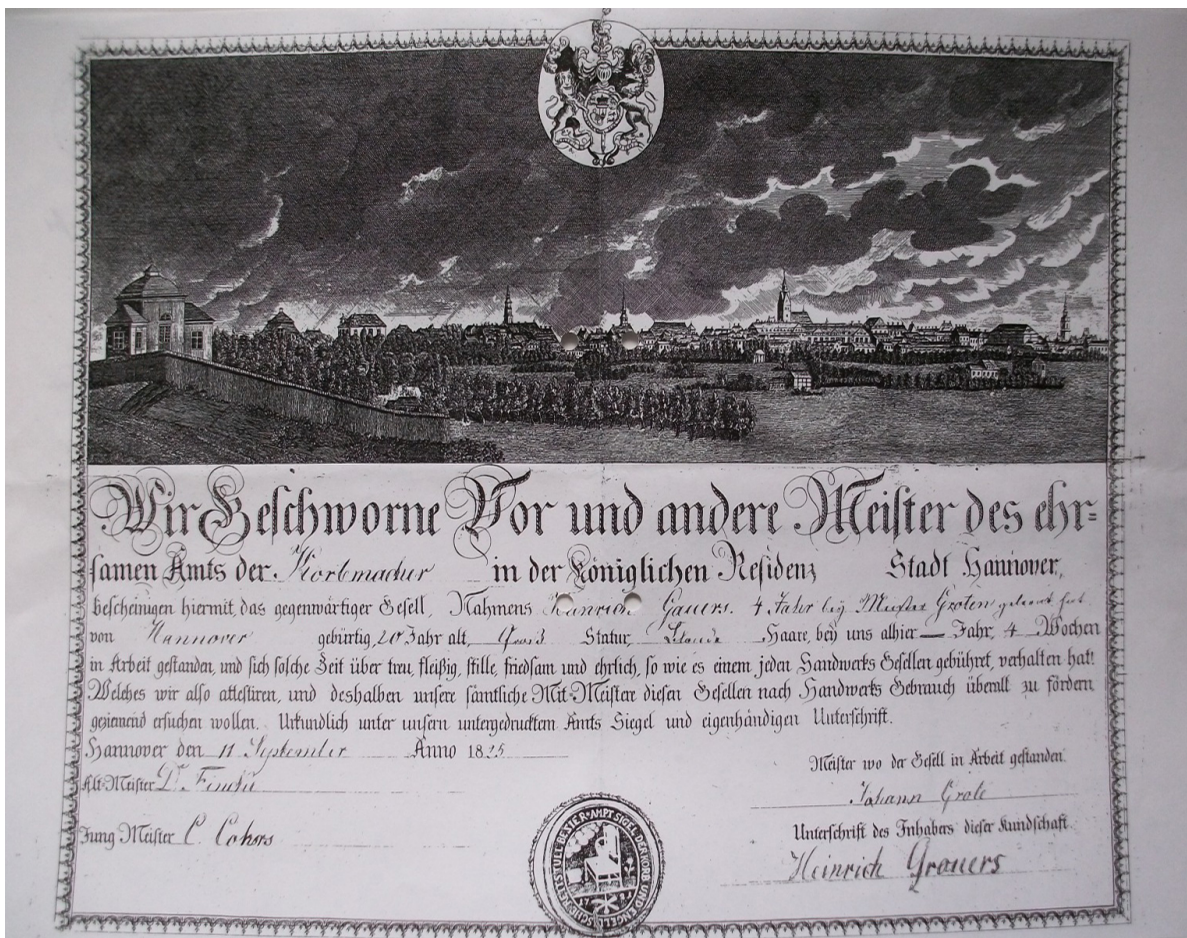 Wir Geschworne Vor und andere Meister des ehr=
samen Amts der Korbmacher in der Königlichen Residenz Stadt Hannover,
bescheinigen hiermit, das gegenwärtiger Gesell, Nahmens Heinrich Gauers. 4 Jahr bey Meister Groten gelernt hat
von Hannover gebürtig, 20 Jahr alt, Gros Statur, Haare, bey uns alhier — Jahr, 4 Wochen
in Arbeit gestanden, und sich solche Zeit über treu, fleißig, stille, friedsam und ehrlich, so wie es einem jeden Handwerks Gesellen gebühret, verhalten hat!
Welches wir also attestiren, und deshalben unsere sämtliche Mit-Meister diesen Gesellen nach Handwerks Gebrauch überall zu fördern
geziemend ersuchen wollen. Urkundlich unter unserm untergedrucktem Amts Siegel und eigenhändigen Unterschrift.
Hannover den 11 September Anno 1825
Meister wo der Gesell in Arbeit gestanden.
Alt-Meister
Johann Grote
Jung Meister C. Cohors
Unterschrift des Inhabers dieser Kundschaft.
Heinrich Grauers
AMPT SIGEL DER KORB UND